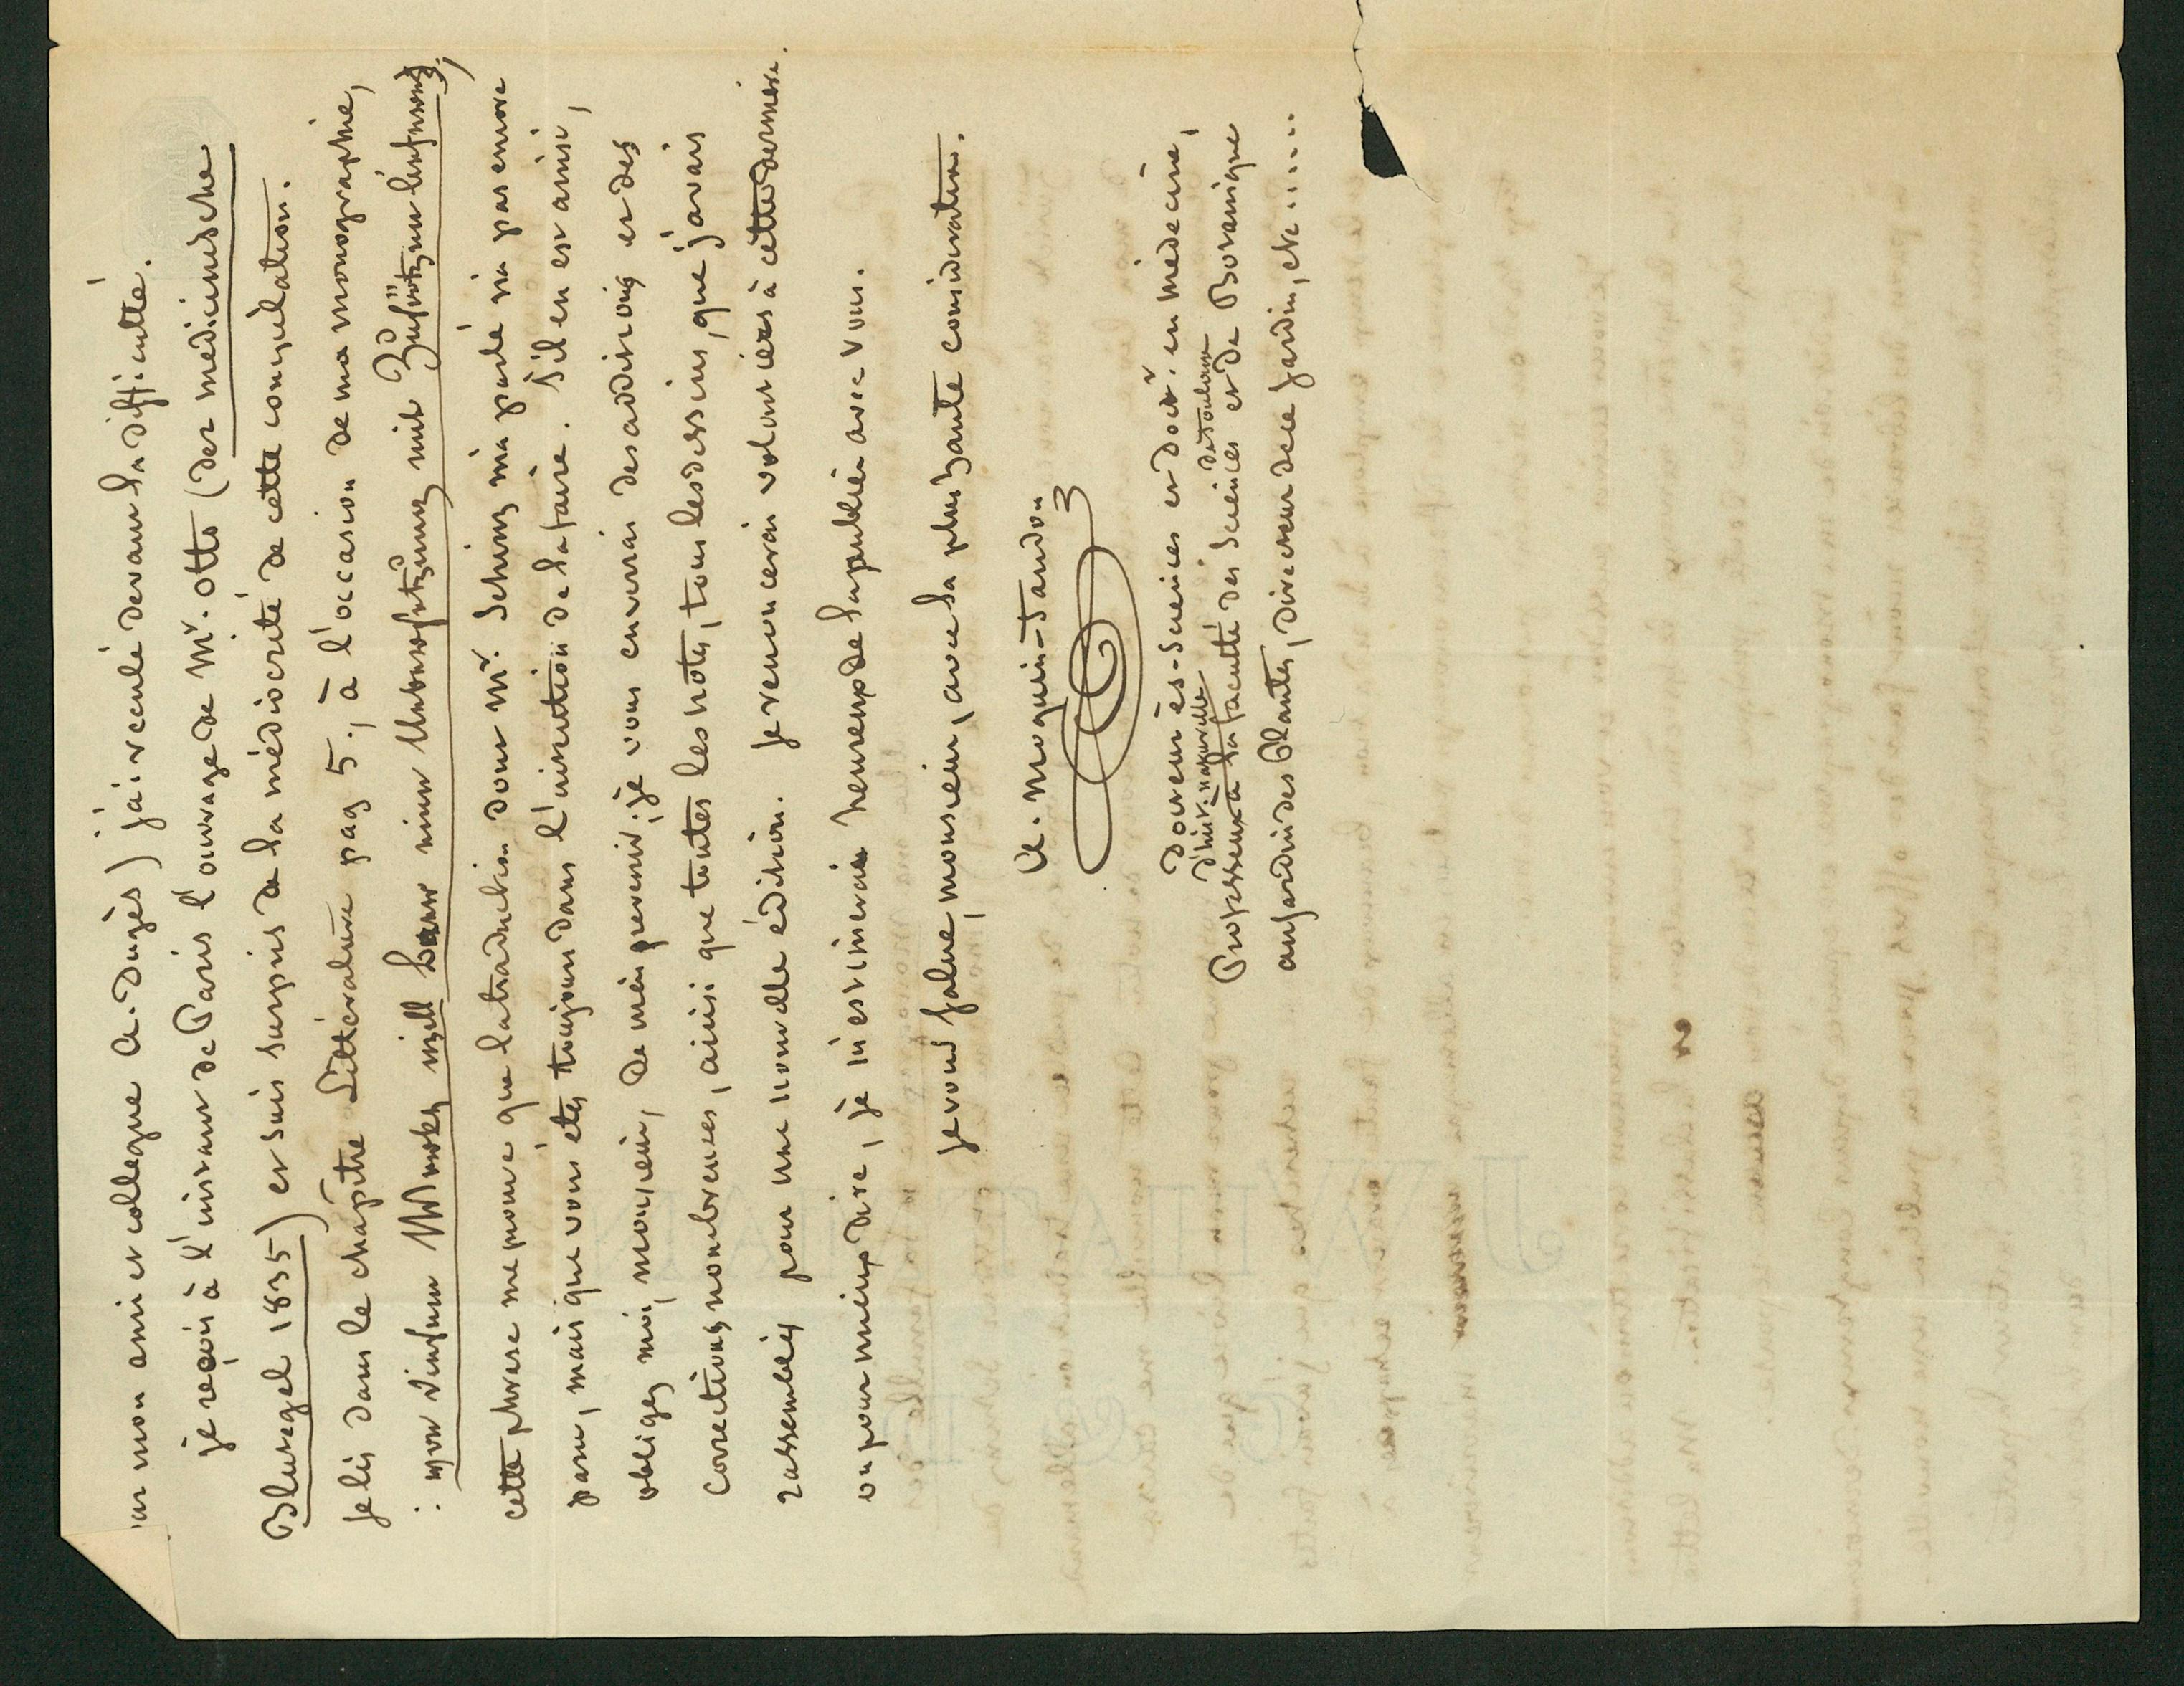 mon ami et collegue A. Dugès) j'ai reculé devant la difficulté.
je reçois à l'instant de Paris l'ouvrage de Mr. Otto (der medicinische
Blutegel 1835) et suis surpris de la médiocrité de cette compilation.
Je lis dans le chapitre Littérature pag 5., à l'occasion de ma monographie,
: von diesem Werke mit
cette phrase me prouve que la traduction dont Mr. Schinz m'a parlé n'a pas encore
paru, mais que vous etes toujours dans l'intention de la faire. S'il en est ainsi,
obligez moi, monsieur, de m'en prevenir; je vous enverrai des additions et des
corrections nombreuses, ainsi que toutes les notes, tous les dessins, que j'avais
rassemblés pour une nouvelle édition. Je renoncerai volontiers à cette derniere.
ou pour mieux dire, je m'estimerais heureux de la publier avec vous.
Je vous salue, monsieur, avec la plus haute considération.
A. Moquin-Tandon
Docteur ès-Sciences et Doctr. en médecine,
d'hist. naturelle de Toulouse
Professeur à la faculté des Sciences et de Botanique
au jardin des Plantes, Directeur de ce Jardin, etc......